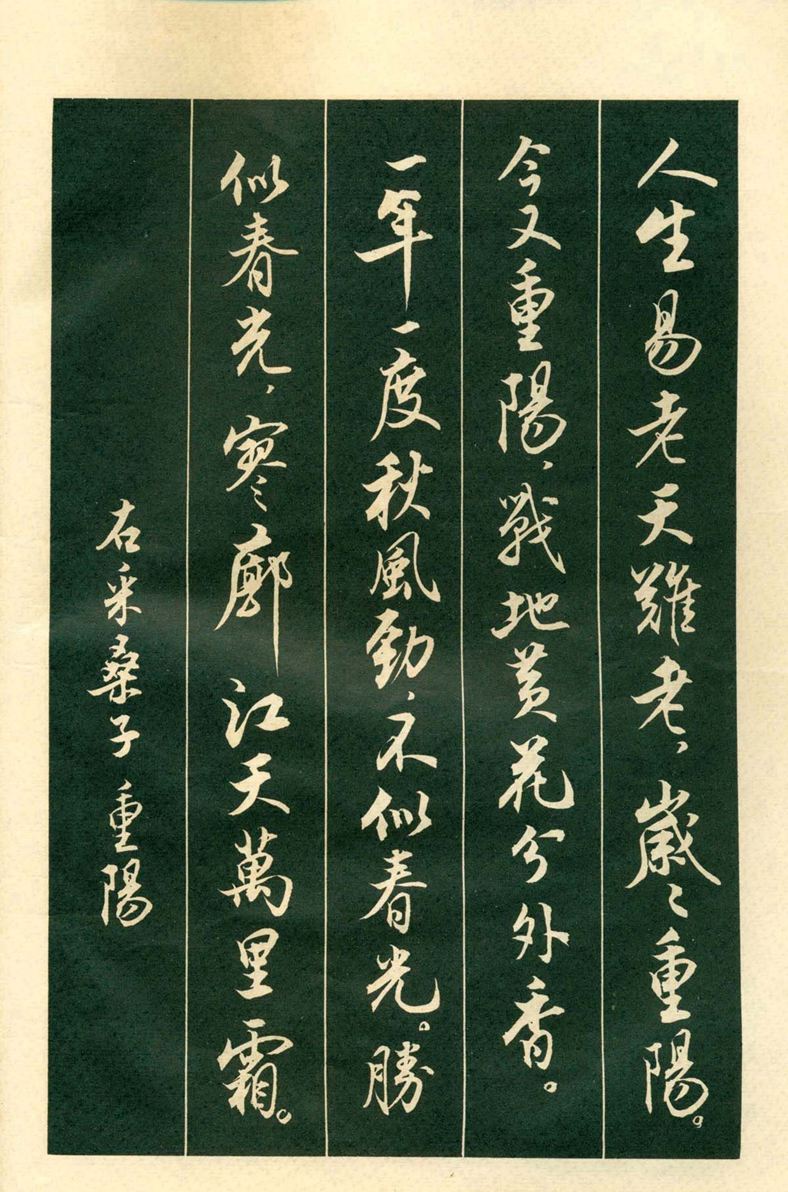 人生易老天難老，歲〻重陽。
今又重陽，戰地黄花分外香。
一年一度秋風勁，不似春光。勝
似春光，寥廓江天萬里霜。
右采桑子 重陽